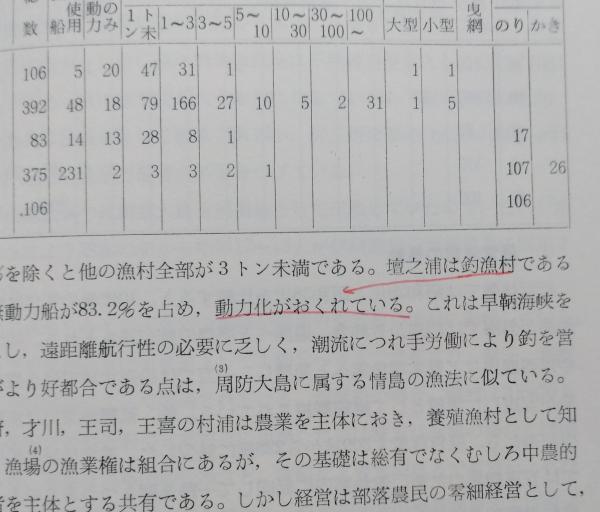 数 船 使用 動力 のみ 1トン未 1〜3 3〜5 5〜10 10〜30 30〜100 100〜 大型 小型 曳網 のり かき
106 5 20 47 31 1 1 1
392 48 18 79 166 27 10 5 2 31 1 5
83 14 13 28 8 1 17
375 231 2 3 3 2 1 107 26
.106 106
%を除くと他の漁村全部が3トン未満である。壇之浦は釣漁村である
無動力船が83.2%を占め,動力化がおくれている。これは早鞆海峡を
し,遠距離航行性の必要に乏しく,潮流につれ手労働により釣を営
がより好都合である点は,(3)周防大島に属する情島の漁法に似ている。
,才川,王司,王喜の村浦は農業を主体におき,養殖漁村として知
漁場(4)の漁業権は組合にあるが,その基礎は総有でなくむしろ中農的
を主体とする共有である。しかし経営は部落農民の零細経営として,